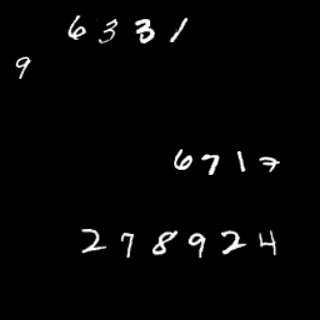 6331
9
6717
278924